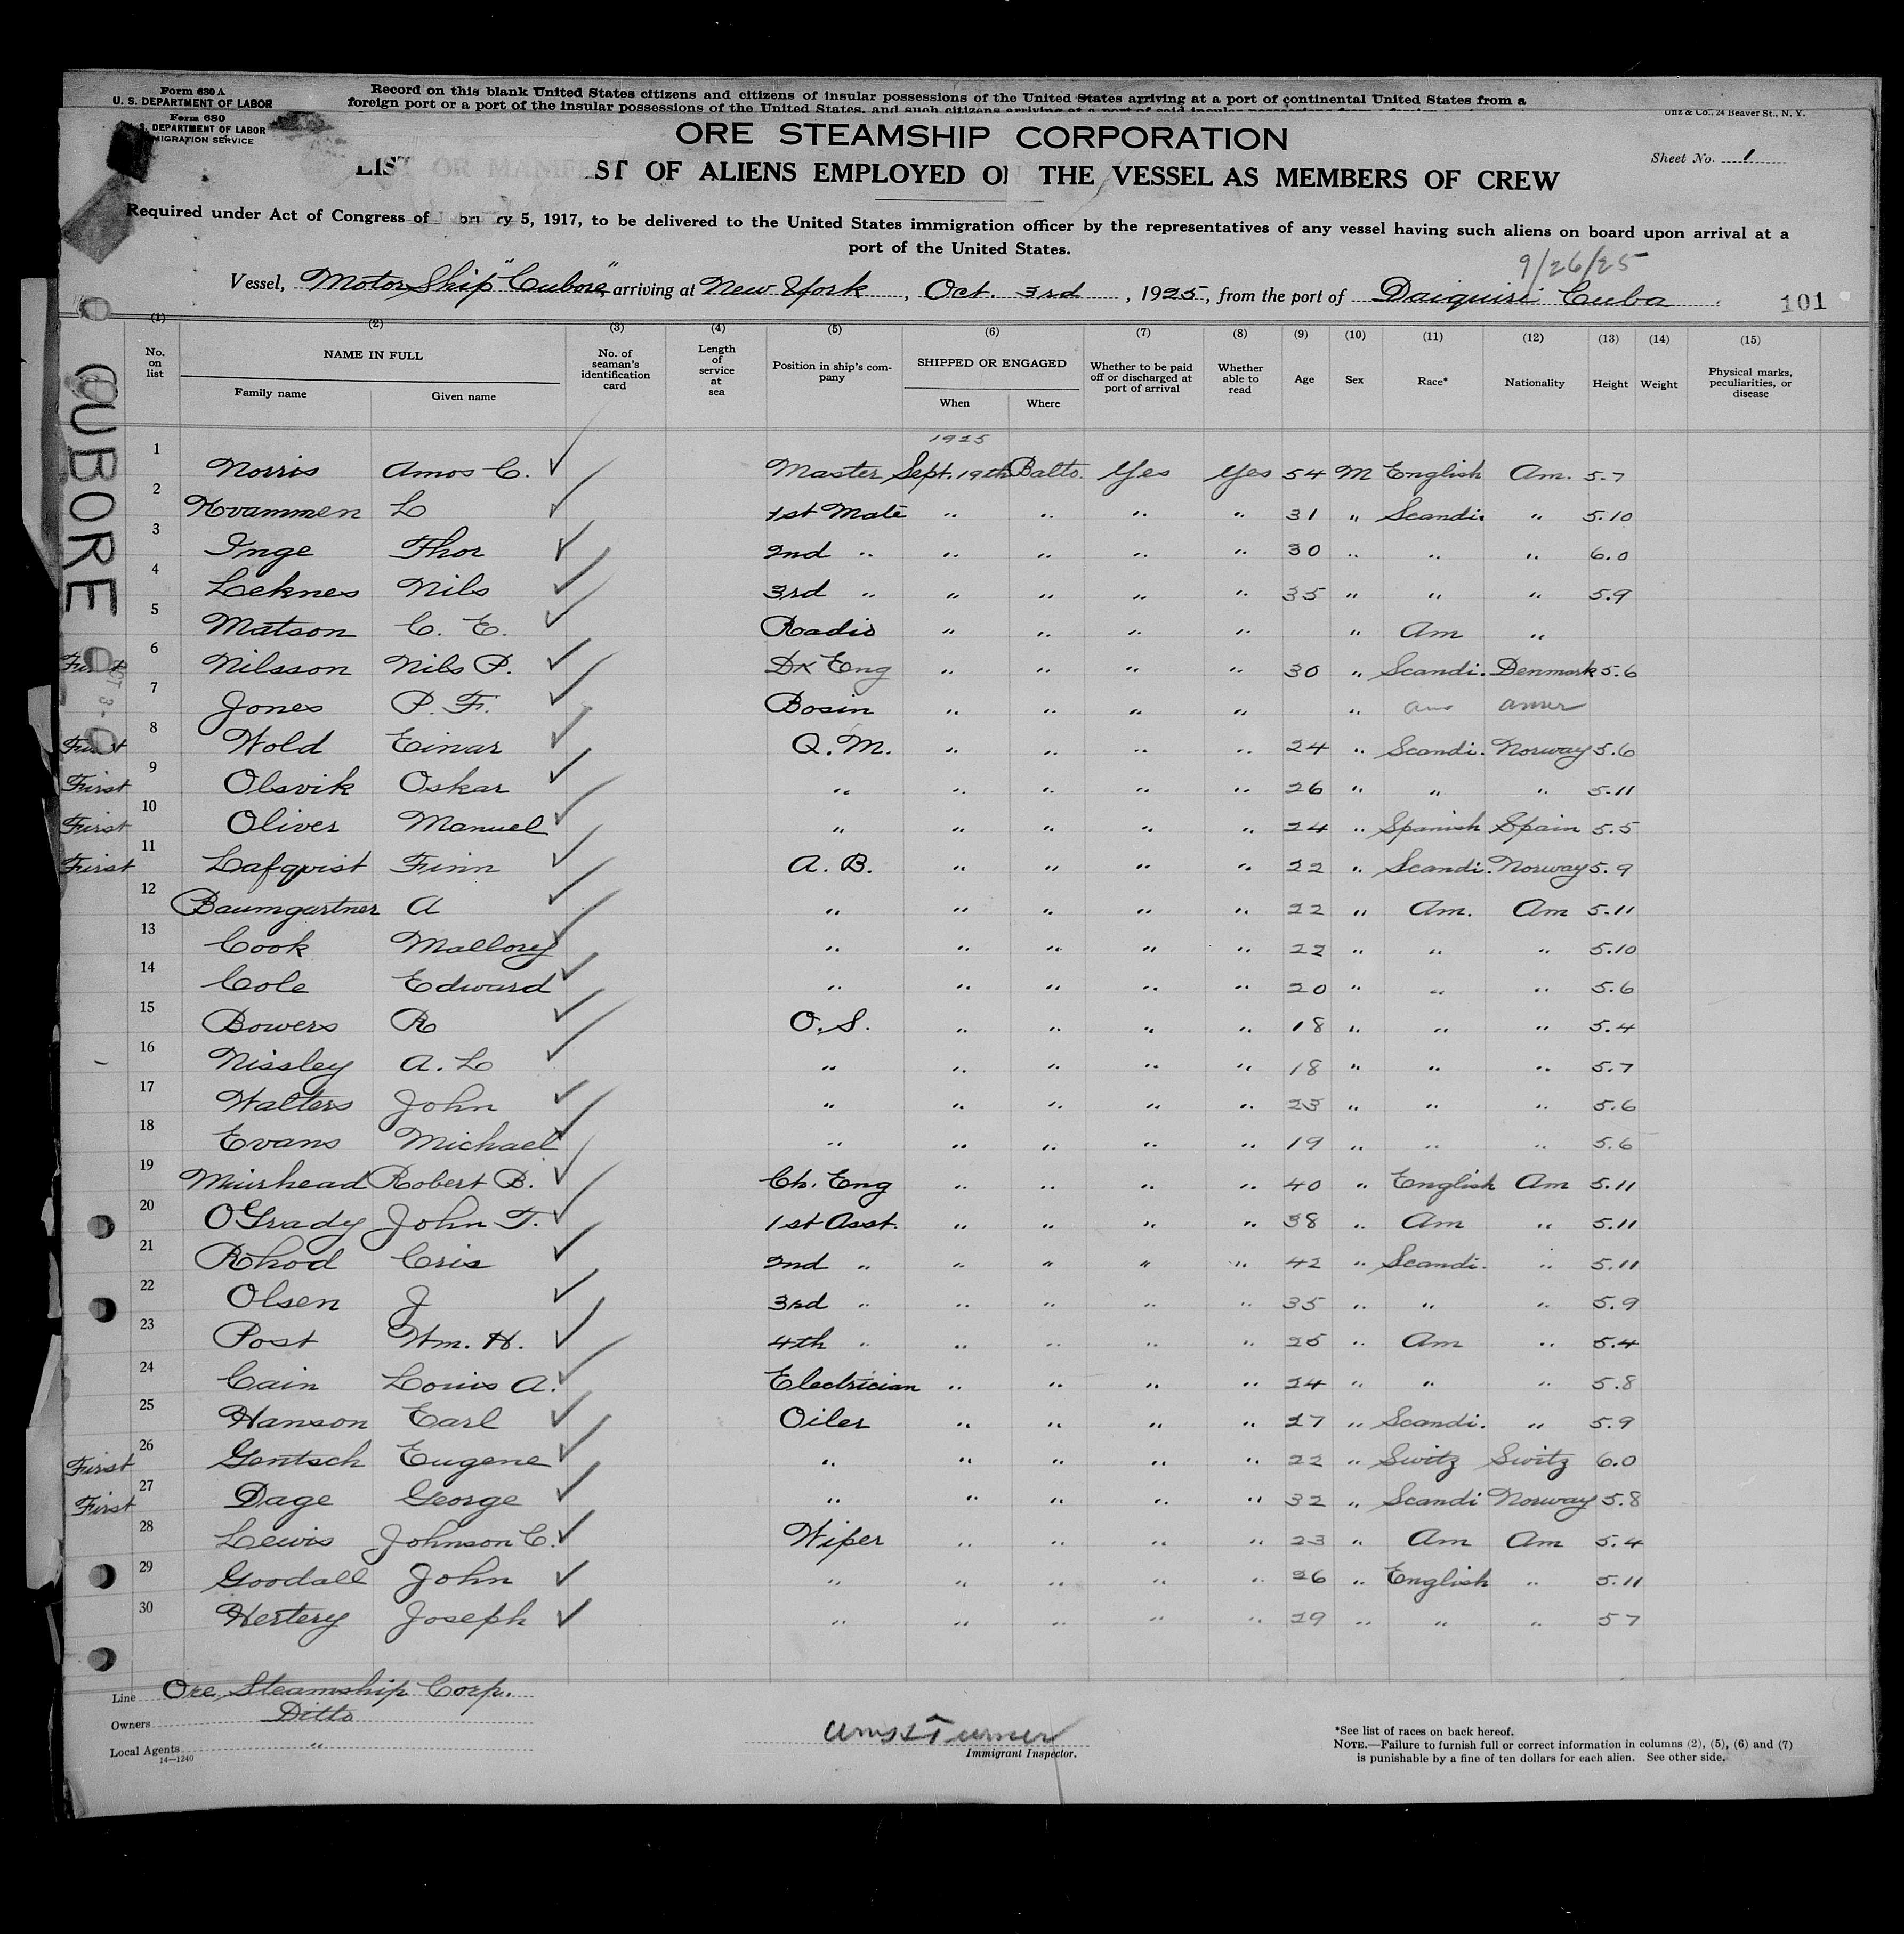 Form 630 A
U. S. DEPARTMENT OF LABOR
Record on this blank United States citizens and citizens of insular possessions of the United States arriving at a port of continental United States from a
foreign port or a port of the insular possessions of the United States, and such citizens arriving at a port of said insular possessions from a foreign
Form 680
U. S. DEPARTMENT OF LABOR
IMMIGRATION SERVICE
Unz & Co., 24 Beaver St., N. Y.
ORE STEAMSHIP CORPORATION
Sheet No. 1
LIST OR MANIFEST OF ALIENS EMPLOYED ON THE VESSEL AS MEMBERS OF CREW
Required under Act of Congress of February 5, 1917, to be delivered to the United States immigration officer by the representatives of any vessel having such aliens on board upon arrival at a
port of the United States.
9/26/25
Vessel, Motor Ship "Cubore" arriving at New York, Oct. 3rd, 1925, from the port of Daiquiri Cuba
101
CUBORE
(1) (2) (3) (4) (5) (6) (7) (8) (9) (10) (11) (12) (13) (14) (15)
No. on list NAME IN FULL Family name Given name No. of seaman's identification card Length of service at sea Position in ship's company SHIPPED OR ENGAGED When Where Whether to be paid off or discharged at port of arrival Whether able to read Age Sex Race* Nationality Height Weight Physical marks, peculiarities, or disease
1925
1 Norris Amos C. Master Sept. 19th Balto. Yes Yes 54 M English Am. 5.7
2 Kvammen L 1st Mate " " " " 31 " Scandi. " 5.10
3 Inge Thor 2nd " " " " " 30 " " " 6.0
4 Leknes Nils 3rd " " " " " 35 " " " 5.9
5 Matson C. E. Radio " " " " " Am "
First 6 Nilsson Nils P. Dx Eng " " " " 30 " Scandi. Denmark 5.6
7 Jones P. F. Bosin " " " " " Am Amer
First 8 Wold Einar Q. M. " " " " 24 " Scandi. Norway 5.6
First 9 Olsvik Oskar " " " " " 26 " " " 5.11
First 10 Oliver Manuel " " " " " 24 " Spanish Spain 5.5
First 11 Lafqvist Finn A. B. " " " " 22 " Scandi. Norway 5.9
12 Baumgartner A " " " " " 22 " Am. Am 5.11
13 Cook Mallory " " " " " 22 " " " 5.10
14 Cole Edward " " " " " 20 " " " 5.6
15 Bowers R O. S. " " " " 18 " " " 5.4
16 Nissley A. L " " " " " 18 " " " 5.7
17 Walters John " " " " " 23 " " " 5.6
18 Evans Michael " " " " " 19 " " " 5.6
19 Muirhead Robert B. Ch. Eng " " " " 40 " English Am 5.11
20 O'Grady John T. 1st Asst. " " " " 38 " Am " 5.11
21 Rhod Cris 2nd " " " " " 42 " Scandi. " 5.11
22 Olsen J 3rd " " " " " 35 " " " 5.9
23 Post Wm. H. 4th " " " " " 25 " Am " 5.4
24 Cain Louis A. Electrician " " " " 24 " " " 5.8
25 Hanson Earl Oiler " " " " 27 " Scandi. " 5.9
First 26 Gentsch Eugene " " " " " 22 " Switz Switz 6.0
First 27 Dage George " " " " " 32 " Scandi Norway 5.8
28 Lewis Johnson C. Wiper " " " " 23 " Am Am 5.4
29 Goodall John " " " " " 26 " English " 5.11
30 Hertery Joseph " " " " " 29 " " " 5 7
Line Ore Steamship Corp.
Owners Ditto
Local Agents "
14—1240
Immigrant Inspector.
*See list of races on back hereof.
NOTE.—Failure to furnish full or correct information in columns (2), (5), (6) and (7)
is punishable by a fine of ten dollars for each alien. See other side.